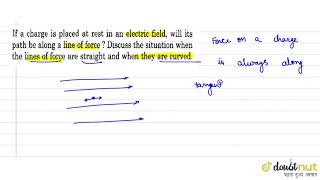 If a charge is placed at rest in an electric field, will its
path be along a line of force ? Discuss the situation when
the lines of force are straight and when they are curved.
Force on a charge
is always along
tangent
doubtnut